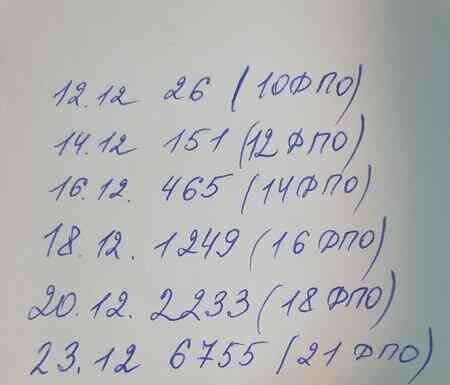 12.12 26 (10ДПО)
14.12 151 (12 ДПО)
16.12. 465 (14ДПО)
18.12. 1249 (16 ДПО)
20.12. 2233 (18 ДПО)
23.12 6755 (21 ДПО)